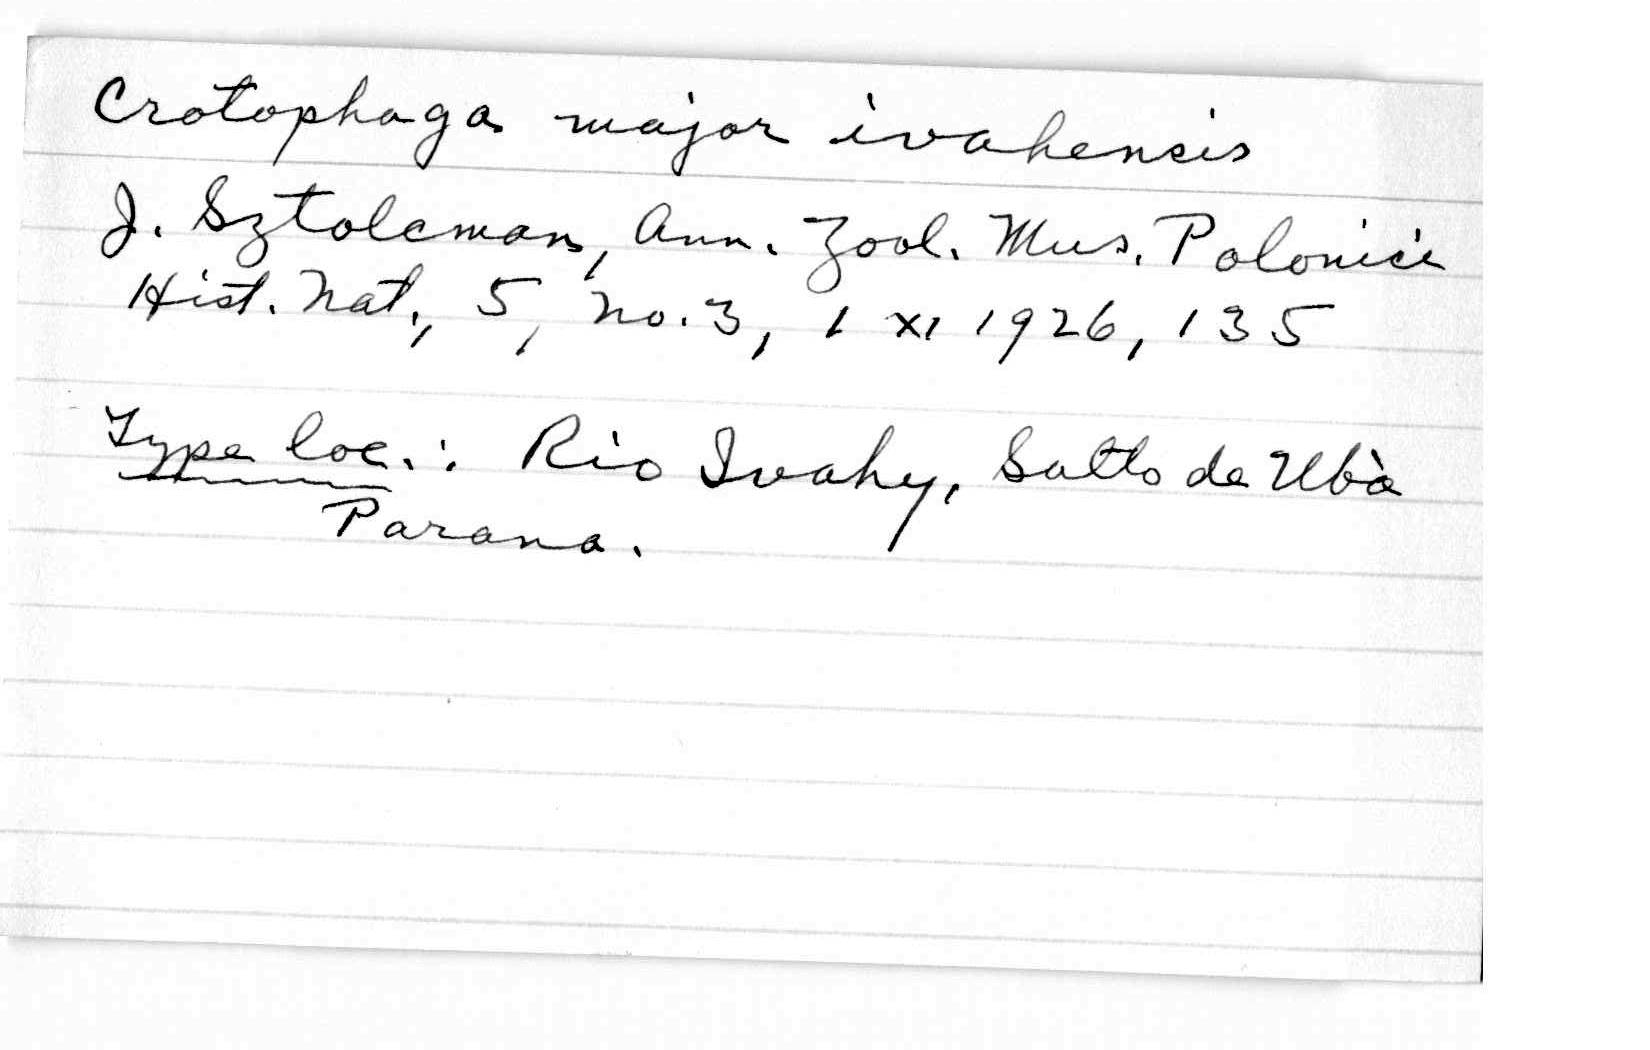 Crotophaga major ivahensis
J. Sztolcman, Ann. Zool. Mus. Polonici
Hist. Nat., 5, no. 3, 1 XI 1926, 135
Type loc.: Rio Ivahy, Salto de Ubà
Parana.